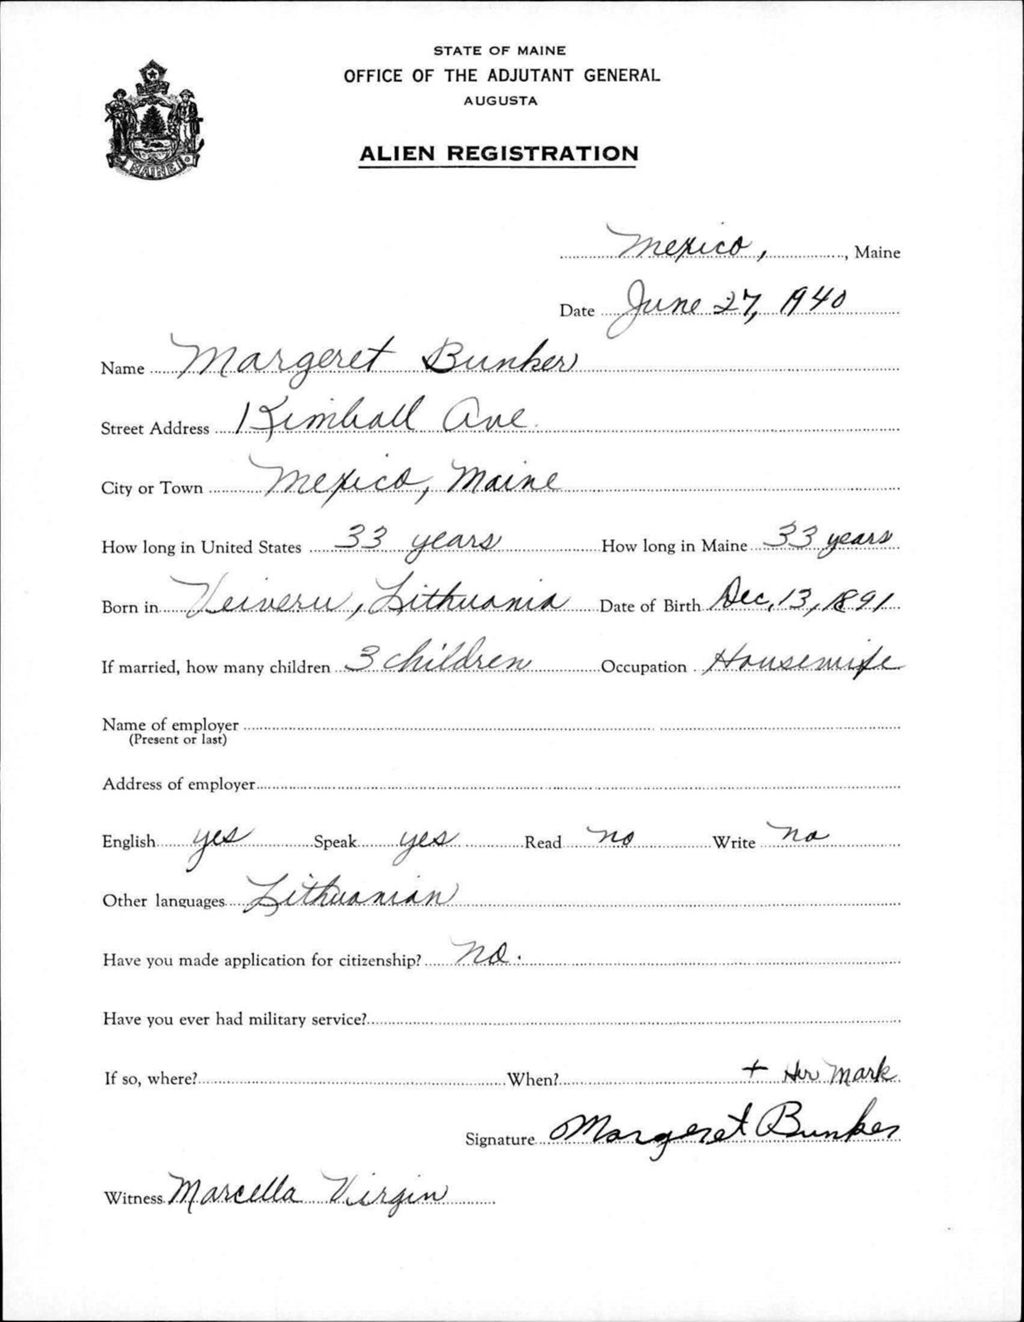 STATE OF MAINE
OFFICE OF THE ADJUTANT GENERAL
AUGUSTA
ALIEN REGISTRATION
MAINE
Mexico, , Maine
Date June 27, 1940
Name Margeret Bunker
Street Address Kimball Ave.
City or Town Mexico, Maine
How long in United States 33 years How long in Maine 33 years
Born in Veiveru, Lithuania Date of Birth Dec, 13, 1891
If married, how many children 3 children Occupation Housewife
Name of employer
(Present or last)
Address of employer
English yes Speak yes Read no Write no
Other languages Lithuanian
Have you made application for citizenship? no.
Have you ever had military service?
If so, where? When? + Her Mark
Signature Margeret Bunker
Witness Marcella Virgin